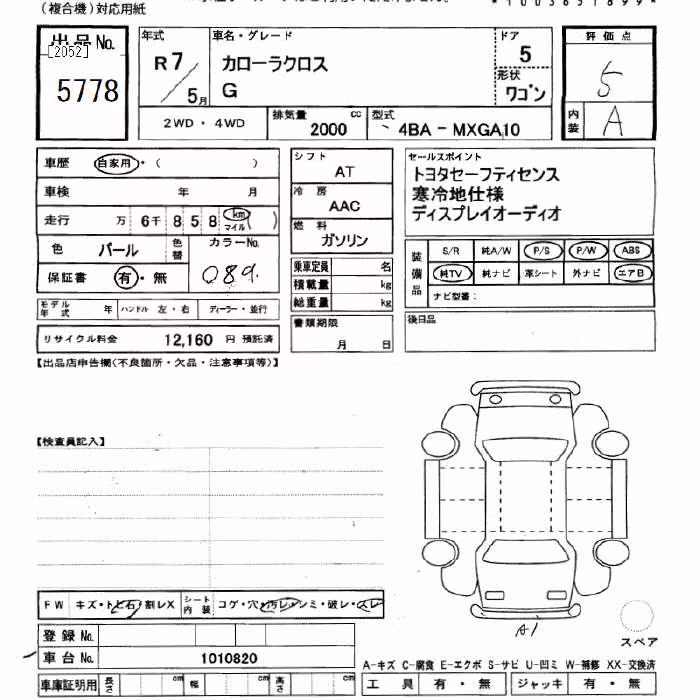 (複合機)対応用紙
*1003651899*
出品No.
[2052]
5778
年式
R7
5月
車名・グレード
カローラクロス
G
ドア
5
形状
ワゴン
評価点
5
内装
A
2WD・4WD
排気量
2000
cc
型式
4BA - MXGA10
車歴
自家用・( )
車検
年 月
走行
万 6千 8 5 8 km マイル( )
色
パール
色替
カラーNo.
089.
保証書
有・無
モデル年式
年
ハンドル 左・右
ディーラー・並行
リサイクル料金
12,160 円 預託済
シフト
AT
冷房
AAC
燃料
ガソリン
乗車定員 名
積載量 kg
総重量 kg
書類期限
月 日
セールスポイント
トヨタセーフティセンス
寒冷地仕様
ディスプレイオーディオ
装備品
S/R 純A/W P/S P/W ABS
純TV 純ナビ 革シート 外ナビ エアB
ナビ型番:
後日品
【出品店申告欄(不良箇所・欠品・注意事項等)】
【検査員記入】
FW キズ・トビ石・割レX
シート内装
コゲ・穴・汚レ・シミ・破レ・スレ
登録No.
車台No.
1010820
車庫証明用
長さ cm
幅 cm
高さ cm
A1
スペア
A-キズ C-腐食 E-エクボ S-サビ U-凹ミ W-補修 XX-交換済
工具 有・無
ジャッキ 有・無